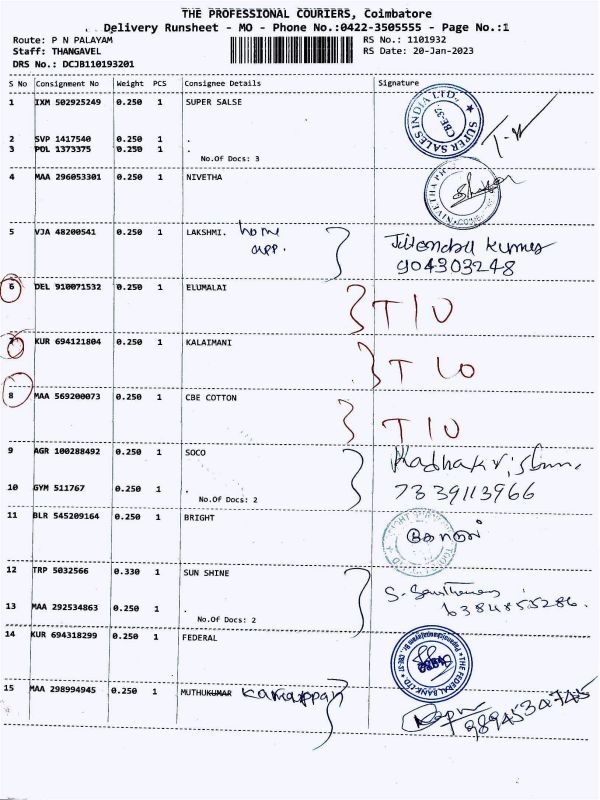 THE PROFESSIONAL COURIERS, Coimbatore
Delivery Runsheet - MO - Phone No.:0422-3505555 - Page No.:1
Route: P N PALAYAM RS No.: 1101932
Staff: THANGAVEL RS Date: 20-Jan-2023
DRS No.: DCJB110193201
S No Consignment No Weight PCS Consignee Details Signature
1 IXM 502925249 0.250 1 SUPER SALSE
SUPER SALES INDIA LTD. CBE-37.
2 SVP 1417540 0.250 1 .
3 POL 1373375 0.250 1 .
No.Of Docs: 3
4 MAA 296053301 0.250 1 NIVETHA
5 VJA 48200541 0.250 1 LAKSHMI. home app.
904303248
6 DEL 910071532 0.250 1 ELUMALAI T I O
7 KUR 694121804 0.250 1 KALAIMANI T I O
8 MAA 569200073 0.250 1 CBE COTTON T I O
9 AGR 100288492 0.250 1 SOCO
10 GYM 511767 0.250 1 .
No.Of Docs: 2
7339113966
11 BLR 545209164 0.250 1 BRIGHT
12 TRP 5032566 0.330 1 SUN SHINE
13 MAA 292534863 0.250 1 .
No.Of Docs: 2
6384855286.
14 KUR 694318299 0.250 1 FEDERAL
THE FEDERAL BANK LTD
15 MAA 298994945 0.250 1 MUTHUKUMAR Karuppan